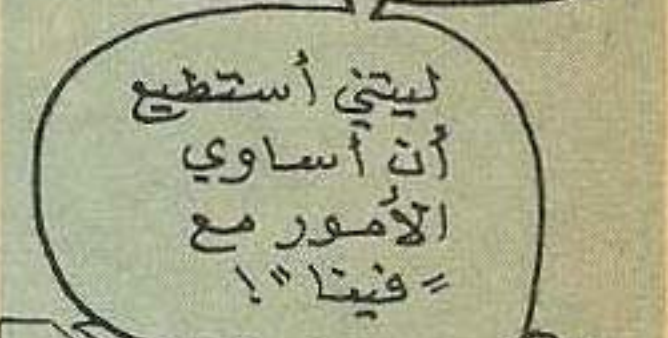 ليتني أستطيع
أن أساوي
الأمور مع
"فينا"!